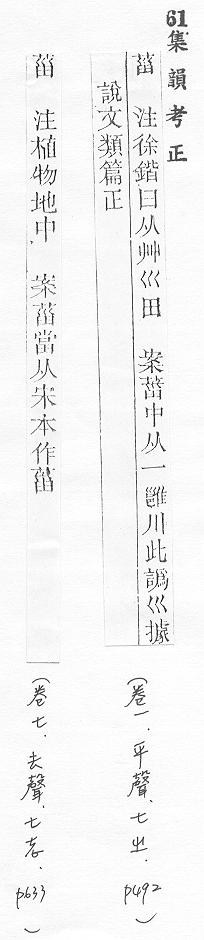 61集韻考正
葘　注徐鍇曰从艸巛田　案葘中从一雝川此譌巛據
說文類篇正
（卷一．平聲．七㞢．p492）
葘　注植物地中　案葘當从宋本作葘
（卷七．去聲．七志．p633）